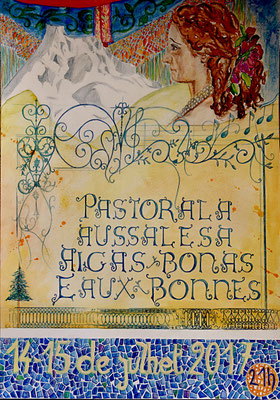 PASTORALA
AUSSALESA
AIGAS BONAS
EAUX BONNES
14-15 de julhet 2017
21h